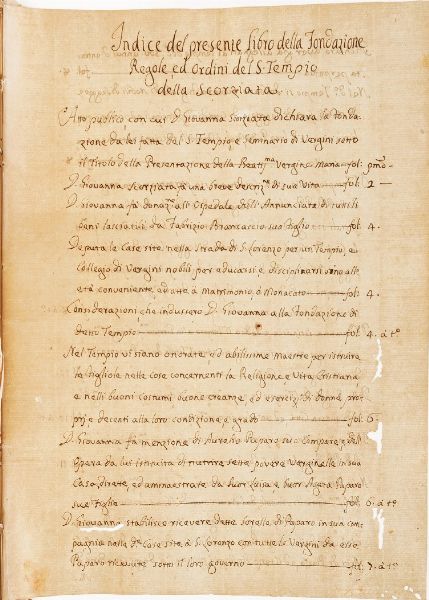 Indice del presente libro della Fondazione
Regole ed Ordini del S. Tempio
della Scorziata
Atto publico con cui D. Giovanna Scorziata dichiara la fonda-
zione da lei fatta del S. Tempio e Seminario di Vergini sotto
il Titolo della Presentazione della Beatiss.ma Vergine Maria fol. pmo
D. Giovanna Scorziata fà una breve descriz.e di sua Vita fol. 2
D. Giovanna fà donaz.e all'Ospedale dell'Annunciata di tutti li
beni lasciatili da Fabrizio Brancaccio suo figlio fol. 4.
Deputa le Case site nella Strada di S. Lorenzo per un Tempio, e
Collegio di Vergini nobili, per educarsi e disciplinarsi sino all'
età conveniente ed atta à Matrimonio, ò Monacato fol. 4.
Considerazioni, che indussero D. Giovanna alla Fondazione di
detto Tempio fol. 4. à to.
Nel Tempio vi siano onorate, ed abilissime Maestre per istruire
le figliole nelle cose concernenti la Religione e Vita Cristiana
e nelli buoni costumi, buone creanze, ed esercizi di donne, pro-
prj e decenti alla loro condizione, e grado fol. 6
D. Giovanna fà menzione di Aurelio Paparo suo Compare, e dell'
Opera da lui istituita di nutrire sette povere Verginelle in sua
Casa, dirette, ed ammaestrate da Suor Luisa, e Suor Agata Paparo
sue figlie fol. 6. à to.
D. Giovanna stabilisce ricevere dette Sorelle di Paparo in sua com-
pagnia nelle d.e Case site à S. Lorenzo con tutte le Vergini da esso
Paparo ricevute sotto il loro governo fol. 7. à to.